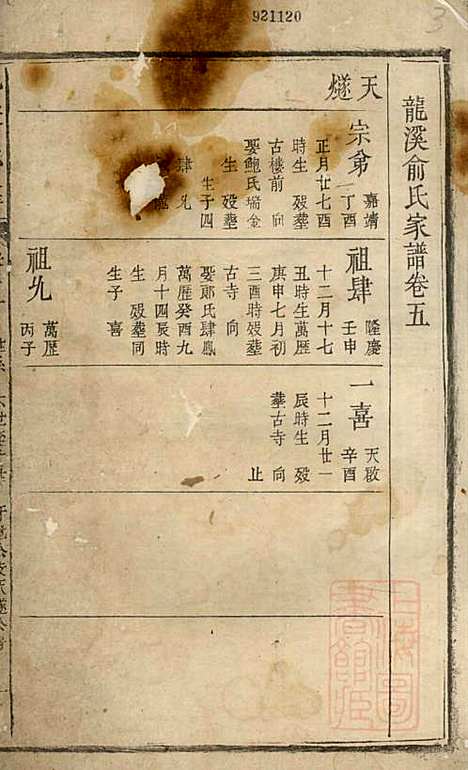 921120
3
龍溪俞氏家譜卷五
天燧
宗弟
嘉靖
丁酉
正月廿七酉
時生 歿塟
古樓前 向
娶鮑氏瑞金
生 歿塟
生子四
肆 先
祖肆
隆慶
壬申
十二月十七
丑時生萬歷
庚申七月初
三酉時歿塟
古寺 向
娶郎氏肆鳳
萬歷癸酉九
月十四辰時
生 歿塟同
生子 喜
祖先
萬歷
丙子
一喜
天啟
辛酉
十二月廿一
辰時生 歿
塟古寺 向
止